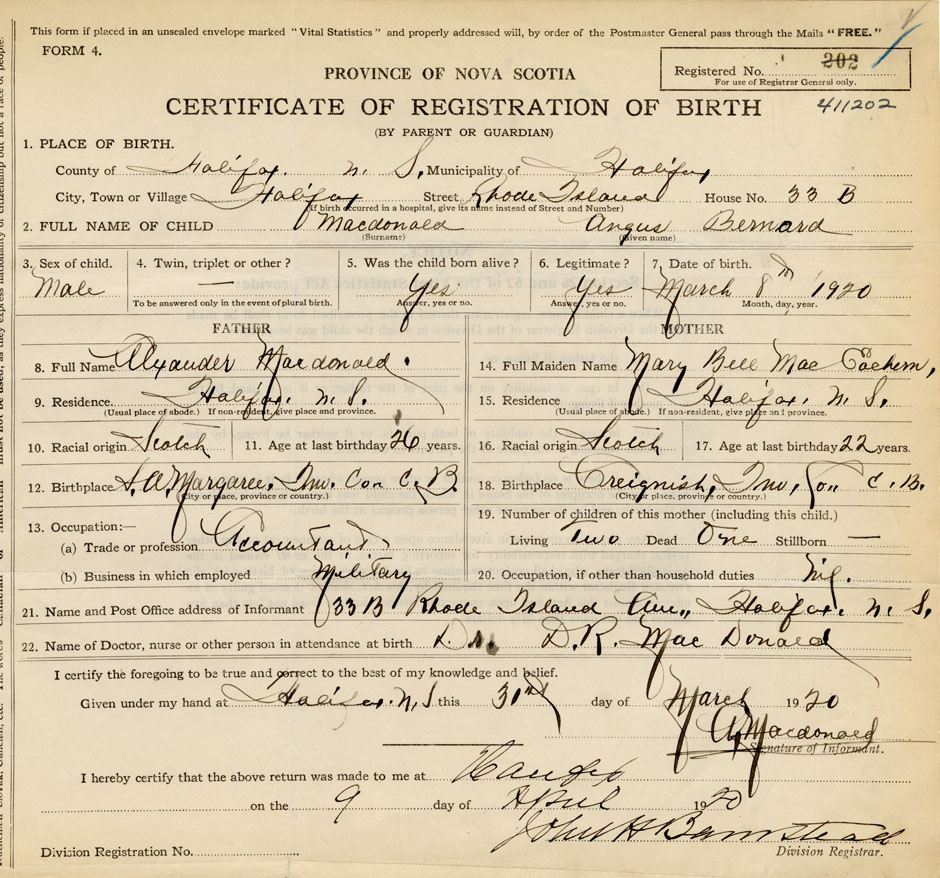 This form if placed in an unsealed envelope marked "Vital Statistics" and properly addressed will, by order of the Postmaster General pass through the Mails "FREE."
FORM 4.
Registered No. 202
For use of Registrar General only.
PROVINCE OF NOVA SCOTIA
CERTIFICATE OF REGISTRATION OF BIRTH 411202
(BY PARENT OR GUARDIAN)
1. PLACE OF BIRTH.
County of Halifax. N. S, Municipality of Halifax
City, Town or Village Halifax Street Rhode Island House No. 33 B
(If birth occurred in a hospital, give its name instead of Street and Number)
2. FULL NAME OF CHILD Macdonald Angus Bernard
(Surname) (Given name)
3. Sex of child. 4. Twin, triplet or other? 5. Was the child born alive? 6. Legitimate? 7. Date of birth.
Male — Yes Yes March 8th 1920
To be answered only in the event of plural birth. Answer, yes or no. Answer, yes or no. Month, day, year.
FATHER MOTHER
8. Full Name Alexander Macdonald. 14. Full Maiden Name Mary Bell Mac Eachern,
9. Residence. Halifax. N. S. 15. Residence Halifax. N. S.
(Usual place of abode.) If non-resident, give place and province. (Usual place of abode.) If non-resident, give place and province.
10. Racial origin Scotch 11. Age at last birthday 26 years. 16. Racial origin Scotch 17. Age at last birthday 22 years.
12. Birthplace S. A. Margaree, Inv. Co. C. B. 18. Birthplace Creignish, Inv, Co. C. B.
(City or place, province or country.) (City or place, province or country.)
13. Occupation:— 19. Number of children of this mother (including this child.)
(a) Trade or profession Accountant Living Two Dead One Stillborn —
(b) Business in which employed Military 20. Occupation, if other than household duties Nil.
21. Name and Post Office address of Informant 33 B Rhode Island Halifax. N. S.
22. Name of Doctor, nurse or other person in attendance at birth Dr. D. R. Mac Donald
I certify the foregoing to be true and correct to the best of my knowledge and belief.
Given under my hand at Halifax. N. S this day of March 1920
A, Macdonald
Signature of Informant.
I hereby certify that the above return was made to me at Halifax
on the 9 day of April 1920
John H Barnstead
Division Registration No. Division Registrar.